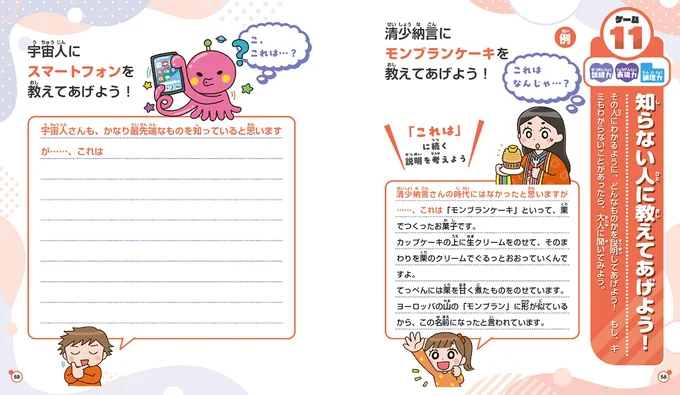 ゲーム
11
説明力
表現力
論理力
知らない人に教えてあげよう!
その人にわかるように、どんなものかを説明してあげよう! もし、キ
ミもわからないことがあったら、大人に聞いてみよう。
例
清少納言に
モンブランケーキを
教えてあげよう!
これは
なんじゃ…?
「これは」
に続く
説明を考えよう
清少納言さんの時代にはなかったと思いますが
……、これは「モンブランケーキ」といって、栗
でつくったお菓子です。
カップケーキの上に生クリームをのせて、そのま
わりを栗のクリームでぐるっとおおっていくんで
すよ。
てっぺんには栗を甘く煮たものをのせています。
ヨーロッパの山の「モンブラン」に形が似ている
から、この名前になったと言われています。
58
宇宙人に
スマートフォンを
教えてあげよう!
こ、
これは…?
宇宙人さんも、かなり最先端なものを知っていると思います
が……、これは
59